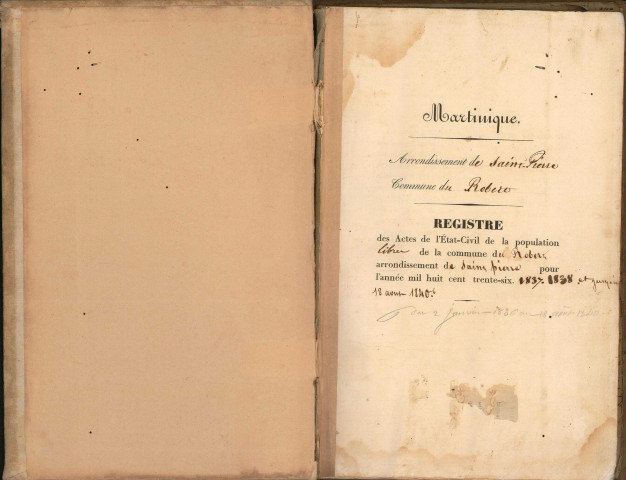 Martinique.
Arrondissement de Saint-Pierre
Commune du Robert
REGISTRE
des Actes de l'État-Civil de la population
libre de la commune du Robert
arrondissement de Saint pierre pour
l'année mil huit cent trente-six. 1837. 1838 et jusqu'au
18 aout 1840.
du 2 Janvier 1836 au 18 août